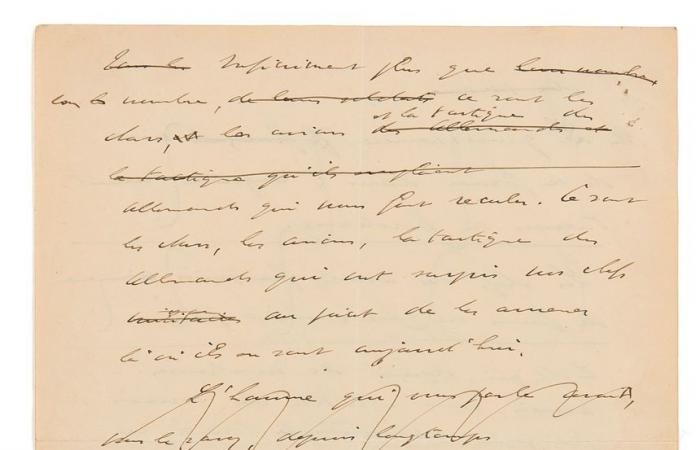 Tous les Infiniment plus que leur nombre,
leur nombre, de leurs soldats ce sont les
et la tactique des
chars, et les avions des allemands et
la tactique qu'ils emploient
allemands qui nous font reculer. Ce sont
les chars, les avions, la tactique des
allemands qui ont surpris nos chefs
militaires au point de les amener
là où ils en sont aujourd'hui.
L'homme qui vous parle
depuis longtemps